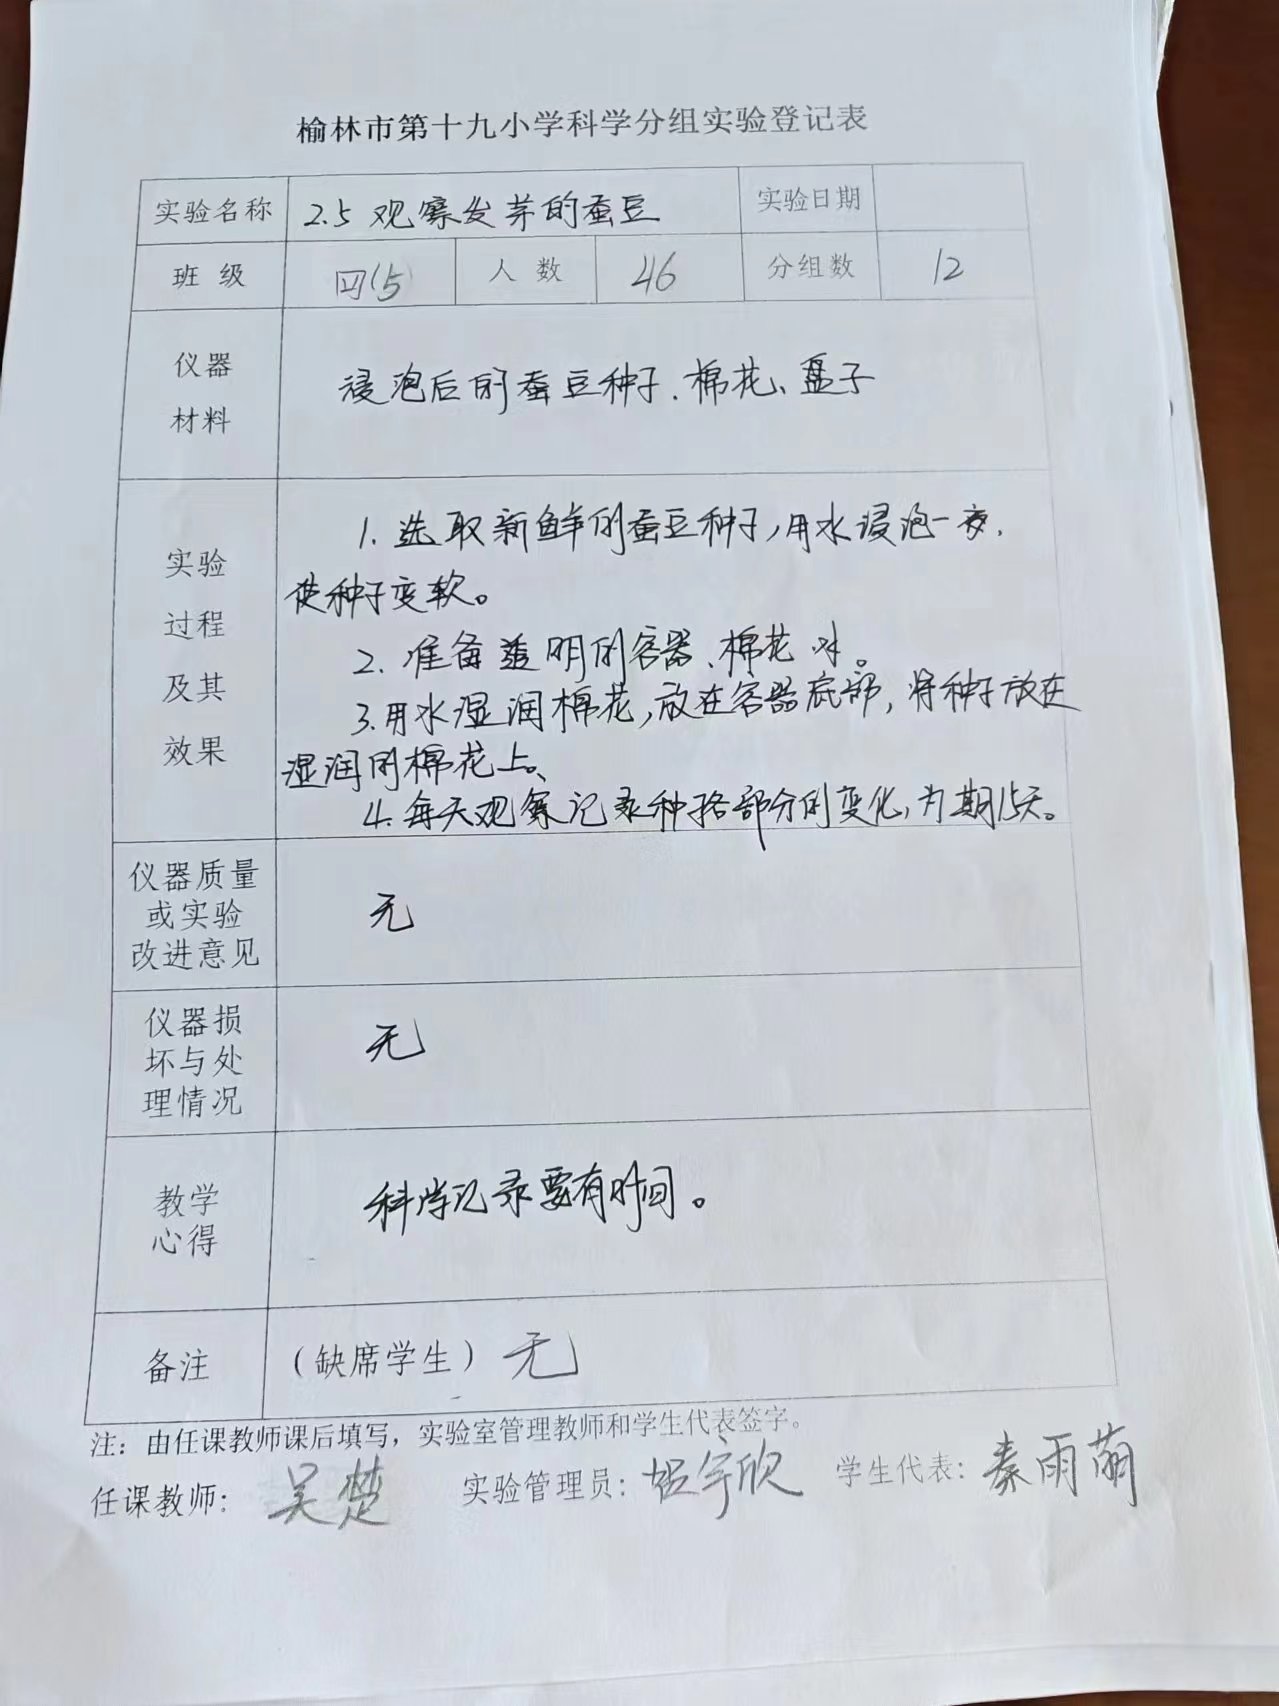 榆林市第十九小学科学分组实验登记表
实验名称 2.5 观察发芽的蚕豆 实验日期
班 级 四(5) 人 数 46 分组数 12
仪器
材料
浸泡后的蚕豆种子、棉花、盘子
实验
过程
及其
效果
1. 选取新鲜的蚕豆种子,用水浸泡一夜,
使种子变软。
2. 准备透明的容器、棉花 水。
3.用水湿润棉花,放在容器底部,将种子放在
湿润的棉花上。
4. 每天观察记录种子各部分的变化,为期15天。
仪器质量
或实验
改进意见
无
仪器损
坏与处
理情况
无
教学
心得
科学记录要有时间。
备注 (缺席学生) 无
注:由任课教师课后填写,实验室管理教师和学生代表签字。
任课教师: 吴楚 实验管理员: 宇欣 学生代表: 秦雨萌